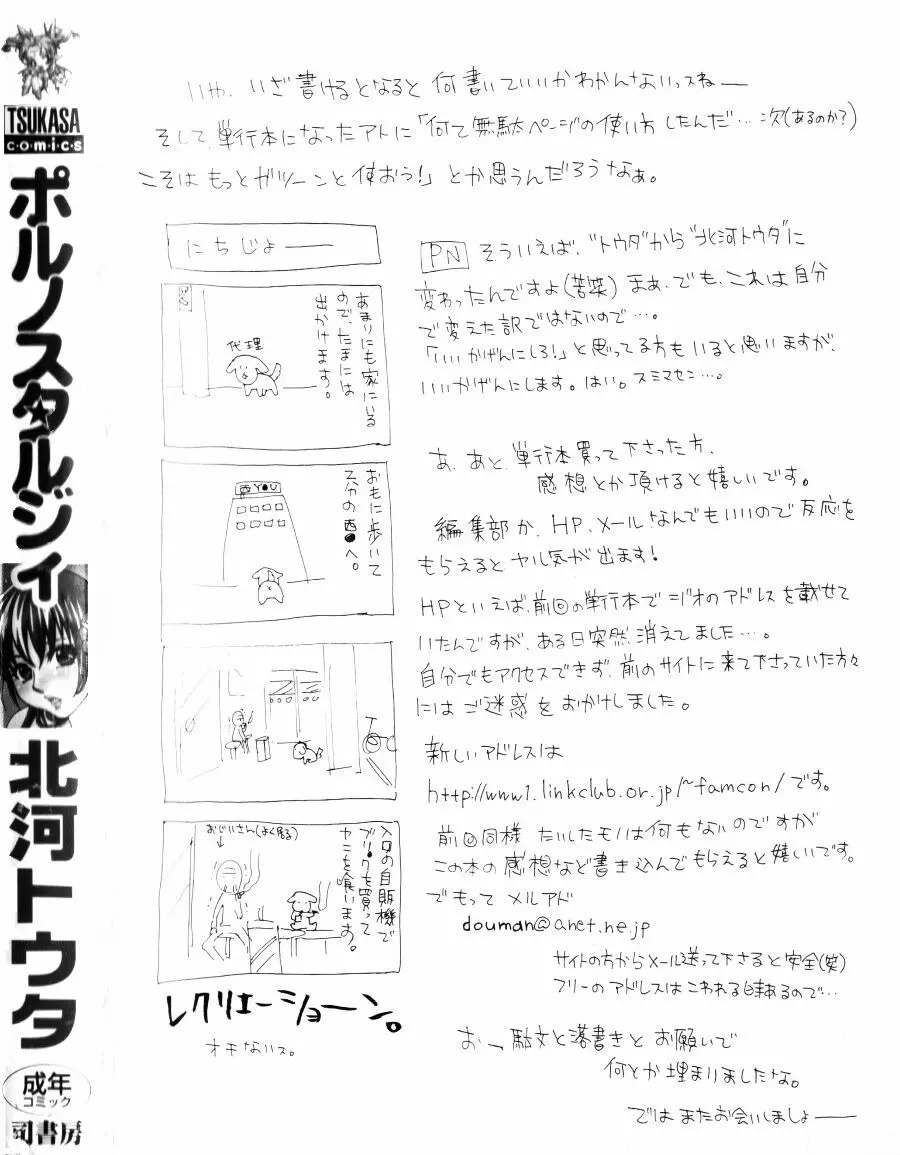 TSUKASA
C・O・M・I・C・S
ポルノスタルジィ
北河トウタ
成年
コミック
司書房
いや、いざ書けるとなると何書いていいかわかんないっスねー
そして単行本になったアトに「何て無駄ページの使い方したんだ…次(あるのか?)
こそはもっとガツーンと使おう!」とか思うんだろうなぁ。
にちじょー
あまりにも家にいる
ので、たまには
出かけます。
代理
おもに歩いて
の西●へ。
YOU
入口の自販機で
ブリ●クを買って
ヤニを喰います。
おじいさん(よく居る)
レクリエーショーン。
オチないス。
PN そういえば、"トウタ"から"北河トウタ"に
変わったんですよ(苦笑)まぁ、でも、これは自分
で変えた訳ではないので…。
「いいかげんにしろ!」と思ってる方もいると思いますが、
いいかげんにします。はい。スミマセン…。
あ、あと、単行本買って下さった方、
感想とか頂けると嬉しいです。
編集部か、HP、メールなんでもいいので反応を
もらえるとヤル気が出ます!
HPといえば、前回の単行本でジオのアドレスを載せて
いたんですが、ある日突然消えてました…。
自分でもアクセスできず、前のサイトに来て下さっていた方々
にはご迷惑をおかけしました。
新しいアドレスは
http://www1.linkclub.or.jp/~famcon/です。
前回同様たいしたモノは何もないのですが
この本の感想など書き込んでもらえると嬉しいです。
でもって メルアド
douman@anet.ne.jp
サイトの方からメール送って下さると安全(笑)
フリーのアドレスはこわれる時あるので…
おー、駄文と落書きとお願いで
何とか埋まりましたな。
ではまたお会いしましょー